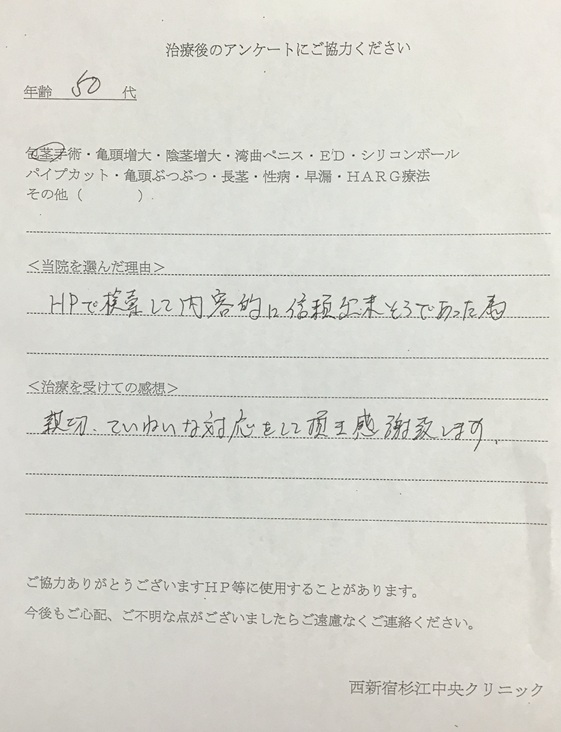 治療後のアンケートにご協力ください
年齢 50 代
包茎手術・亀頭増大・陰茎増大・湾曲ペニス・ED・シリコンボール
パイプカット・亀頭ぶつぶつ・長茎・性病・早漏・HARG療法
その他（　　　）
＜当院を選んだ理由＞
HPで検索して内容的に信頼出来そうであった為
＜治療を受けての感想＞
親切、ていねいな対応をして頂き感謝致します。
ご協力ありがとうございますHP等に使用することがあります。
今後もご心配、ご不明な点がございましたらご遠慮なくご連絡ください。
西新宿杉江中央クリニック